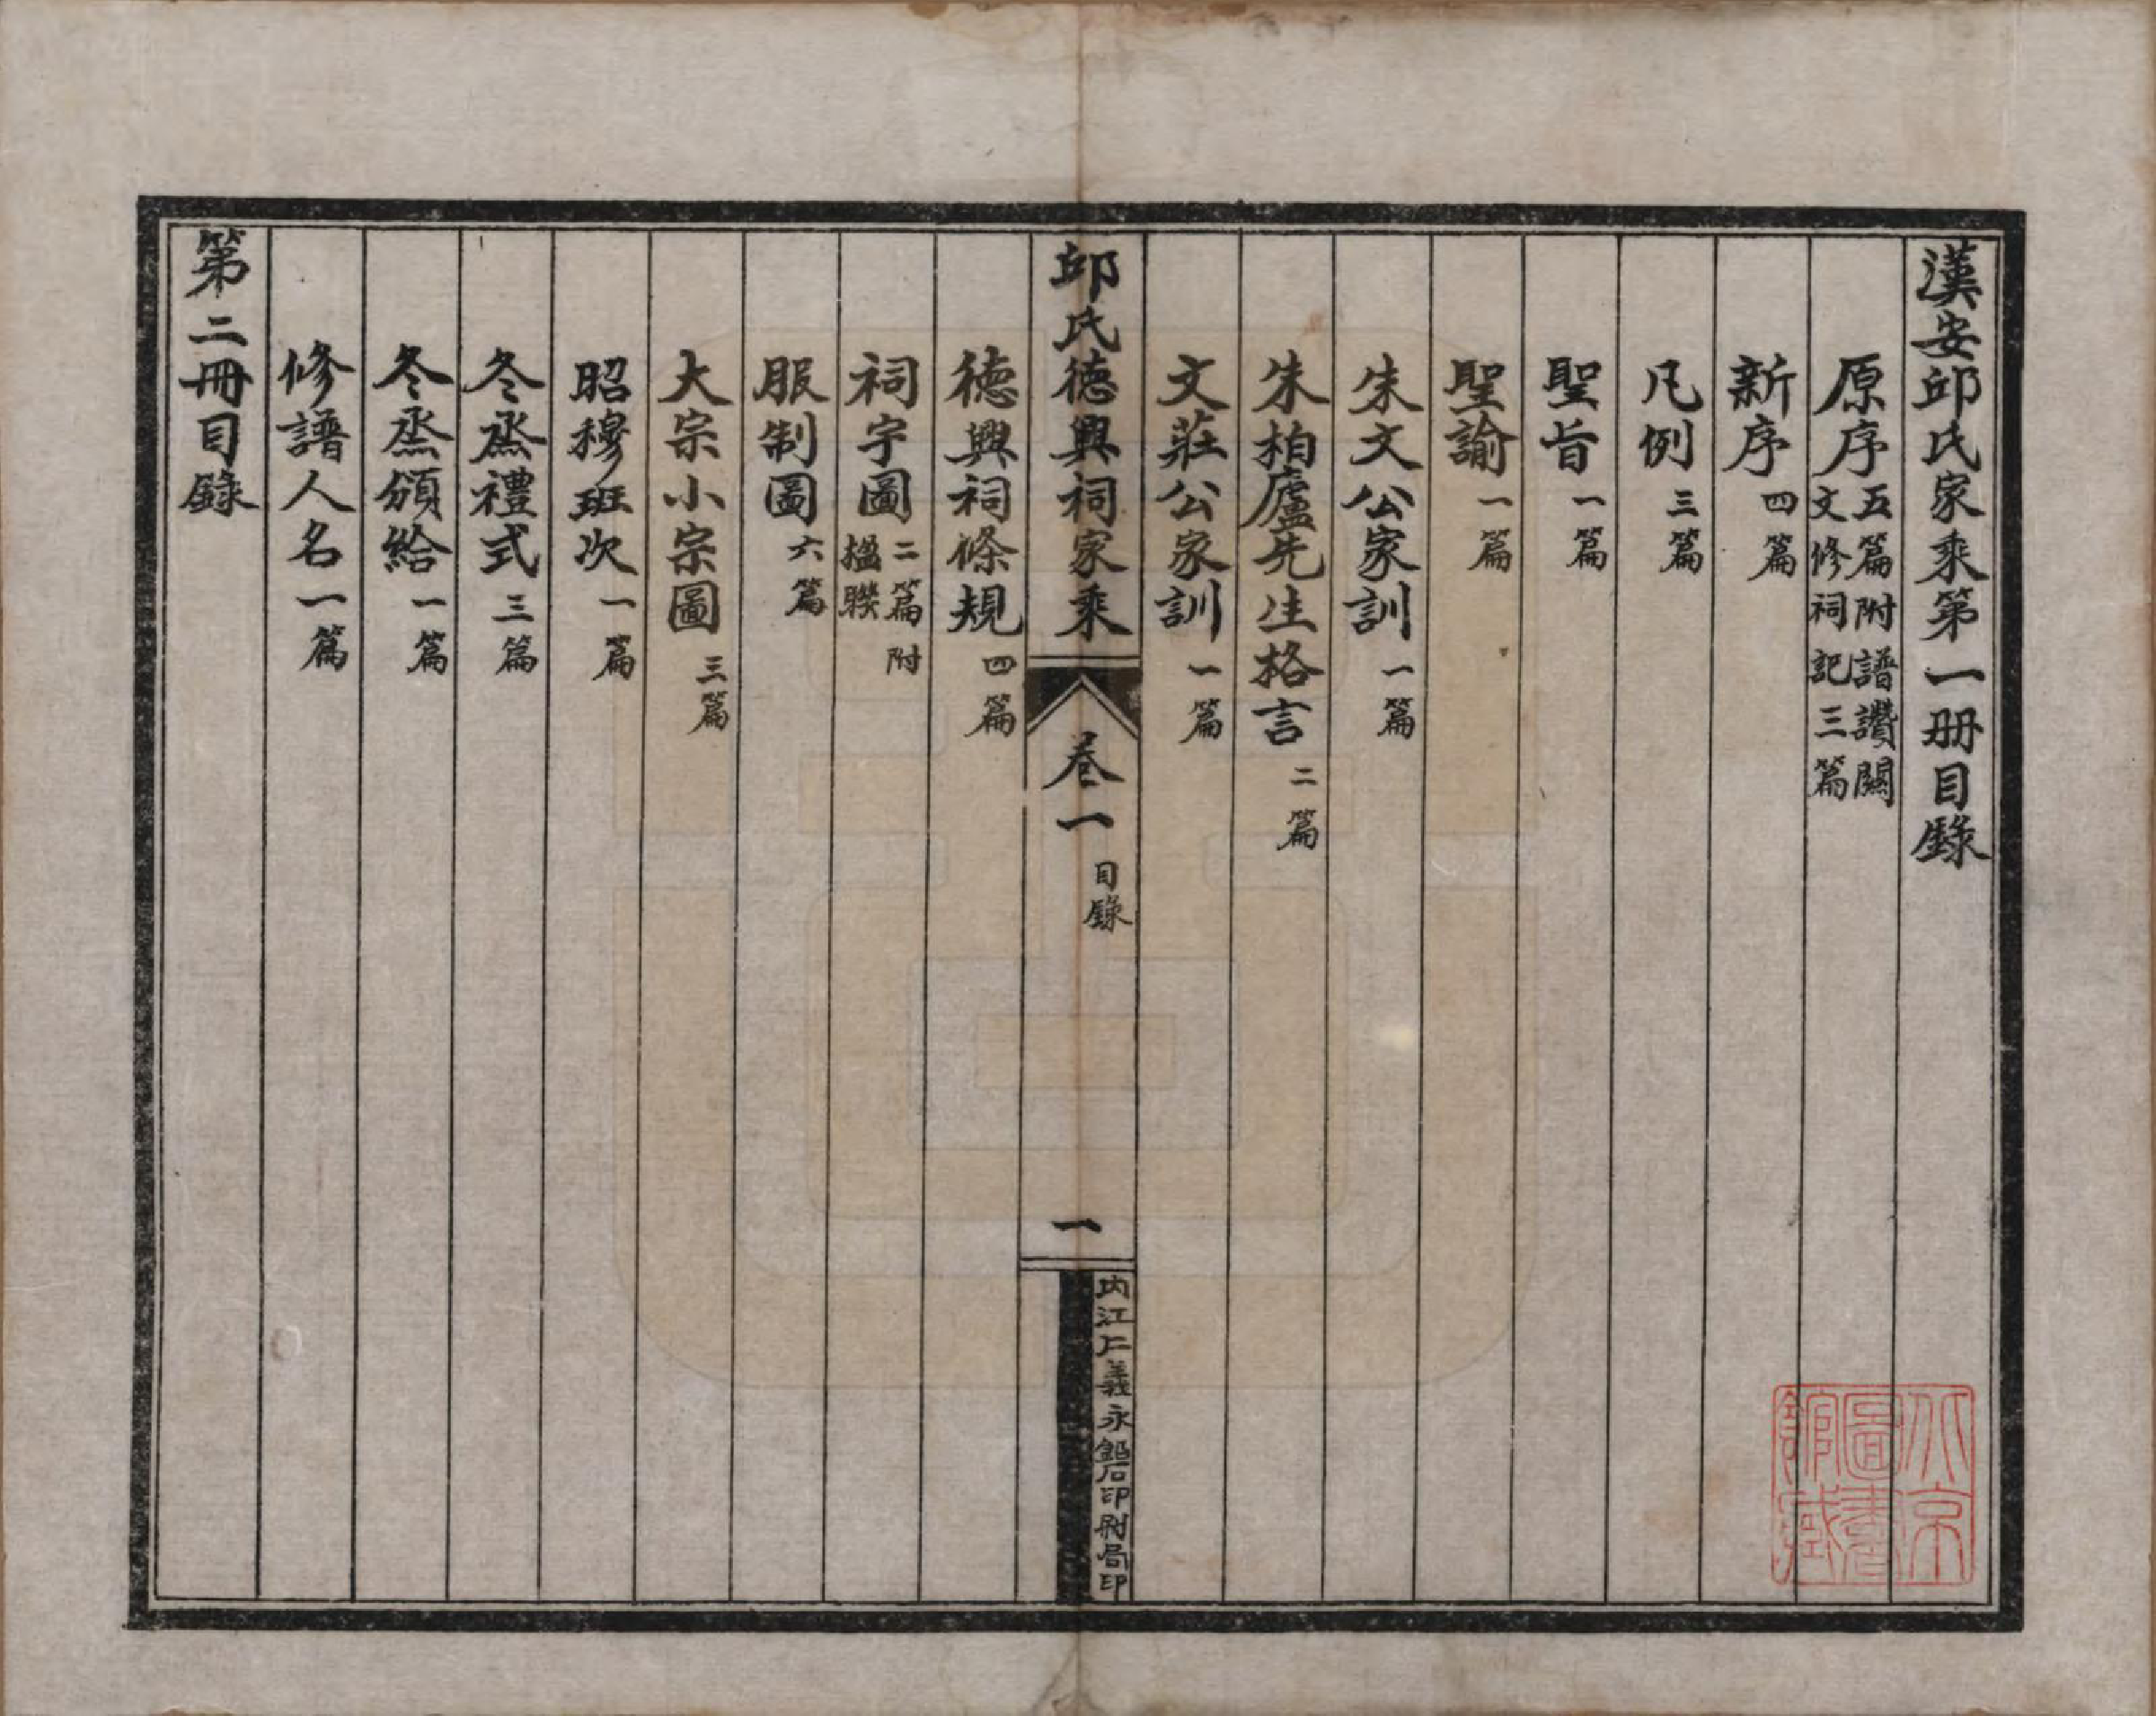 漢安邱氏家乘第一册目錄
原序五篇附譜讚關文修祠記三篇
新序四篇
凡例三篇
聖旨一篇
聖諭一篇
朱文公家訓一篇
朱柏廬先生格言二篇
文莊公家訓一篇
邱氏德興祠家乘
卷一
目錄
一
内江仁義永鉛石印刷局印
德興祠條規四篇
祠宇圖二篇附楹聯
服制圖六篇
大宗小宗圖三篇
昭穆班次一篇
冬烝禮式三篇
冬烝頒給一篇
修譜人名一篇
第二冊目錄
北京圖書館藏